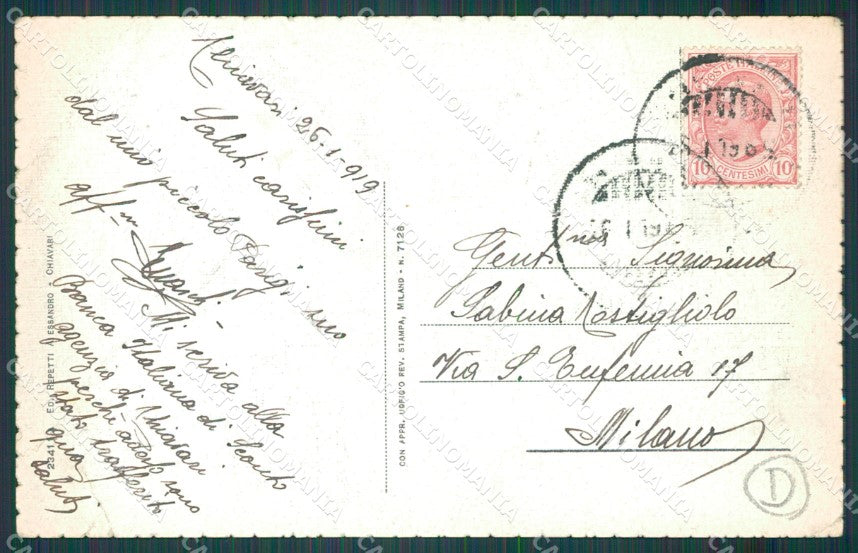 Chiavari 26.1.919
Saluti carissimi
dal mio piccolo Parigi, suo
aff.mo
Mi scriva alla
Banca Italiana di Sconto
agenzia di Chiavari
perché adesso sono
stato trasferito
qua
Saluti
23410 Ed. Repetti Alessandro - Chiavari
CON APPR. UFFICIO REV. STAMPA, MILANO - N. 7126
POSTE
10 CENTESIMI 10
Gent.ma Signorina
Sabina Rostigliolo
Via S. Eufemia 17
Milano
D
CARTOLINOMANIA